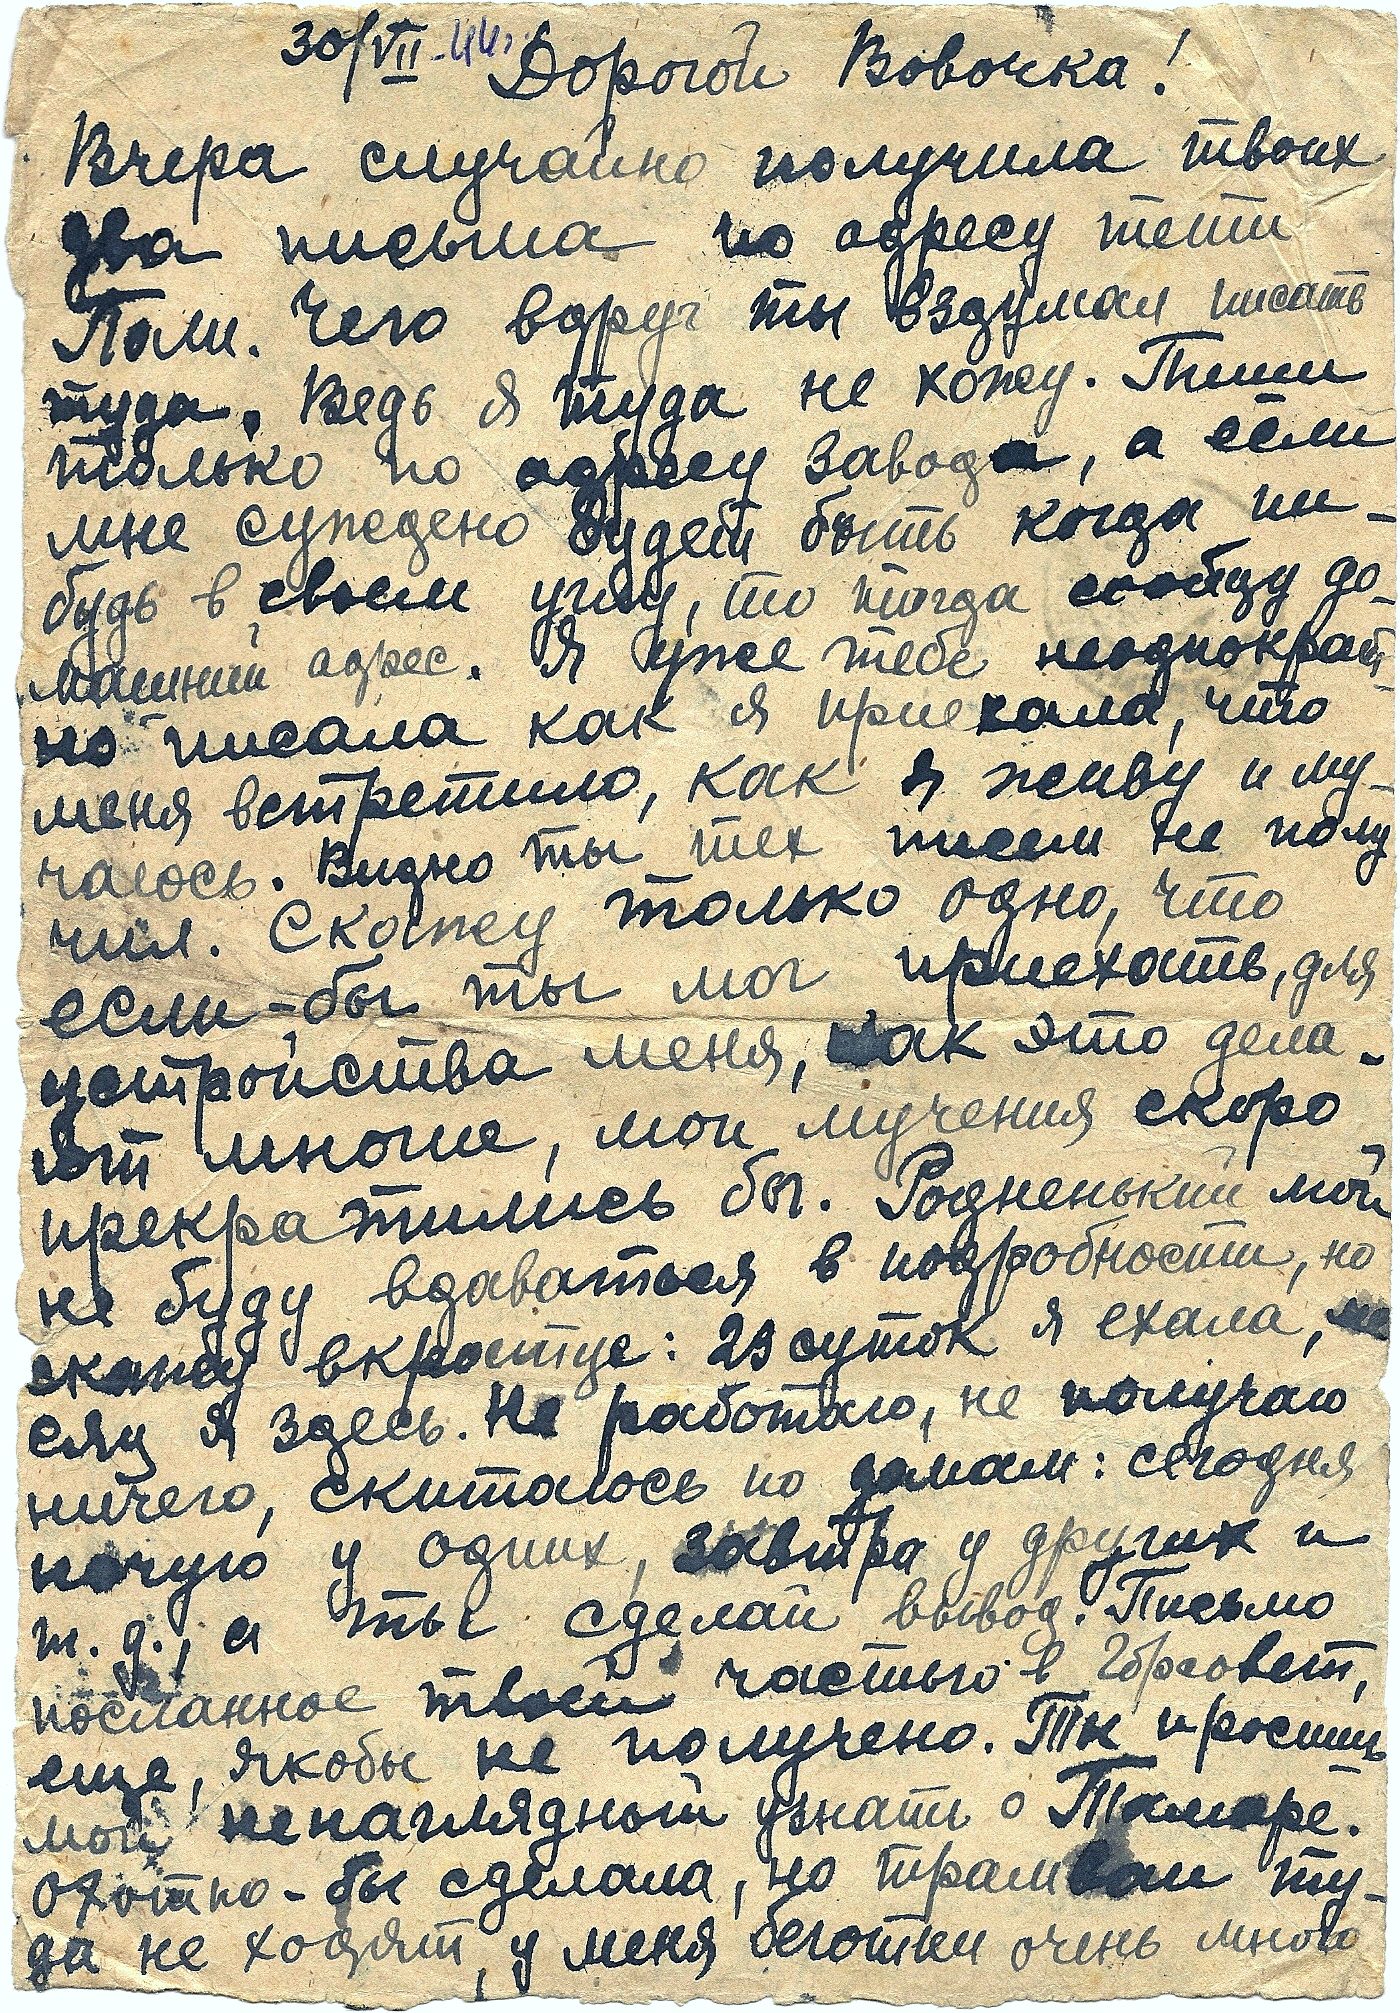 30/VII-44г. Дорогой Вовочка!
Вчера случайно получила твоих
два письма по адресу тети
Поли. Чего вдруг ты вздумал писать
туда. Ведь я туда не хожу. Пиши
только по адресу завода, а если
мне суждено будет быть когда ни-
будь в своем углу, то тогда сообщу до-
машний адрес. Я уже тебе неоднократ-
но писала как я приехала, что
меня встретило, как я живу и му-
чаюсь. Видно ты тех писем не полу
чил. Скажу только одно, что
если-бы ты мог приехать, для
устройства меня, как это дела-
ют многие, мои мучения скоро
прекратились бы. Родненький мой
не буду вдаваться в подробности, но
скажу вкратце: 29 суток я ехала, ме
сяц я здесь. Не работаю, не получаю
ничего, скитаюсь по домам: сегодня
ночую у одних, завтра у других и
т. д., а ты сделай вывод. Письмо
посланное твоей частью в Горсовет,
еще, якобы не получено. Ты просишь
мой ненаглядный узнать о Тамаре.
Охотно-бы сделала, но трамваи ту-
да не ходят, у меня беготни очень много